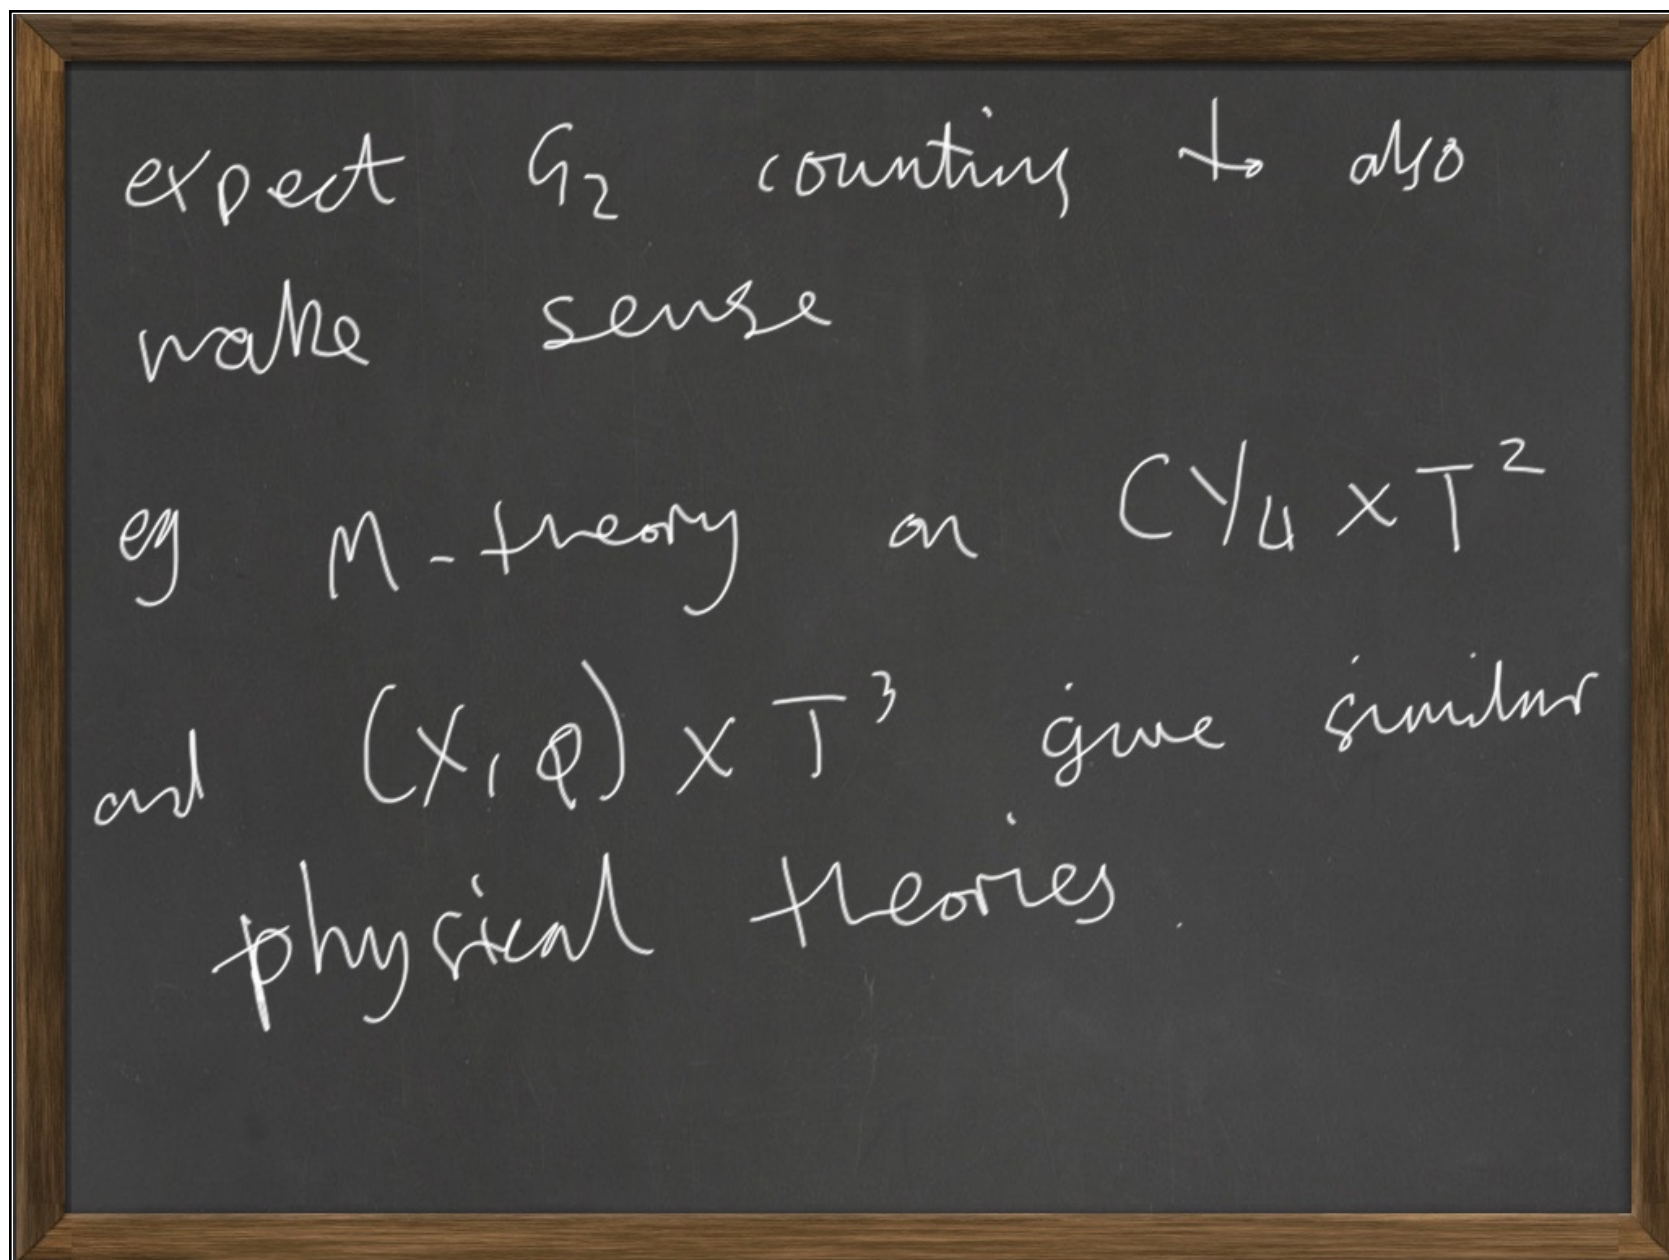 expect G₂ counting to also
make sense
eg M-theory on CY₄ × T²
and (X, φ) × T³ give similar
physical theories.